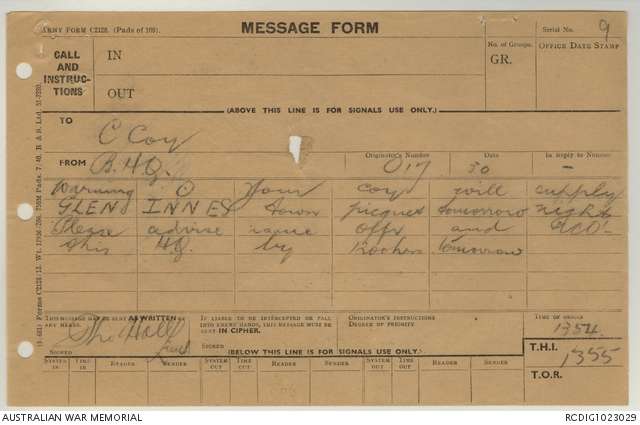 ARMY FORM C2128. (Pads of 100).
MESSAGE FORM
Serial No. 9
CALL AND INSTRUCTIONS
IN
OUT
No. of Groups.
GR.
OFFICE DATE STAMP
(ABOVE THIS LINE IS FOR SIGNALS USE ONLY.)
TO
C Coy
FROM
B.H.Q.
Originator's Number
O17
Date
30
In Reply to Number
—
Warning O Your coy will supply
GLEN INNES town picquet tomorrow night
Please advise name offr and NCO
this HQ by 1200hrs tomorrow
THIS MESSAGE MAY BE SENT AS WRITTEN BY ANY MEANS.
SIGNED
IF LIABLE TO BE INTERCEPTED OR FALL INTO ENEMY HANDS, THIS MESSAGE MUST BE SENT IN CIPHER.
SIGNED
ORIGINATOR'S INSTRUCTIONS
DEGREE OF PRIORITY
TIME OF ORIGIN
1354
T.H.I.
1355
T.O.R.
(BELOW THIS LINE IS FOR SIGNALS USE ONLY.)
SYSTEM IN TIME IN READER SENDER SYSTEM OUT TIME OUT READER SENDER SYSTEM OUT TIME OUT READER SENDER
AUSTRALIAN WAR MEMORIAL
RCDIG1023029